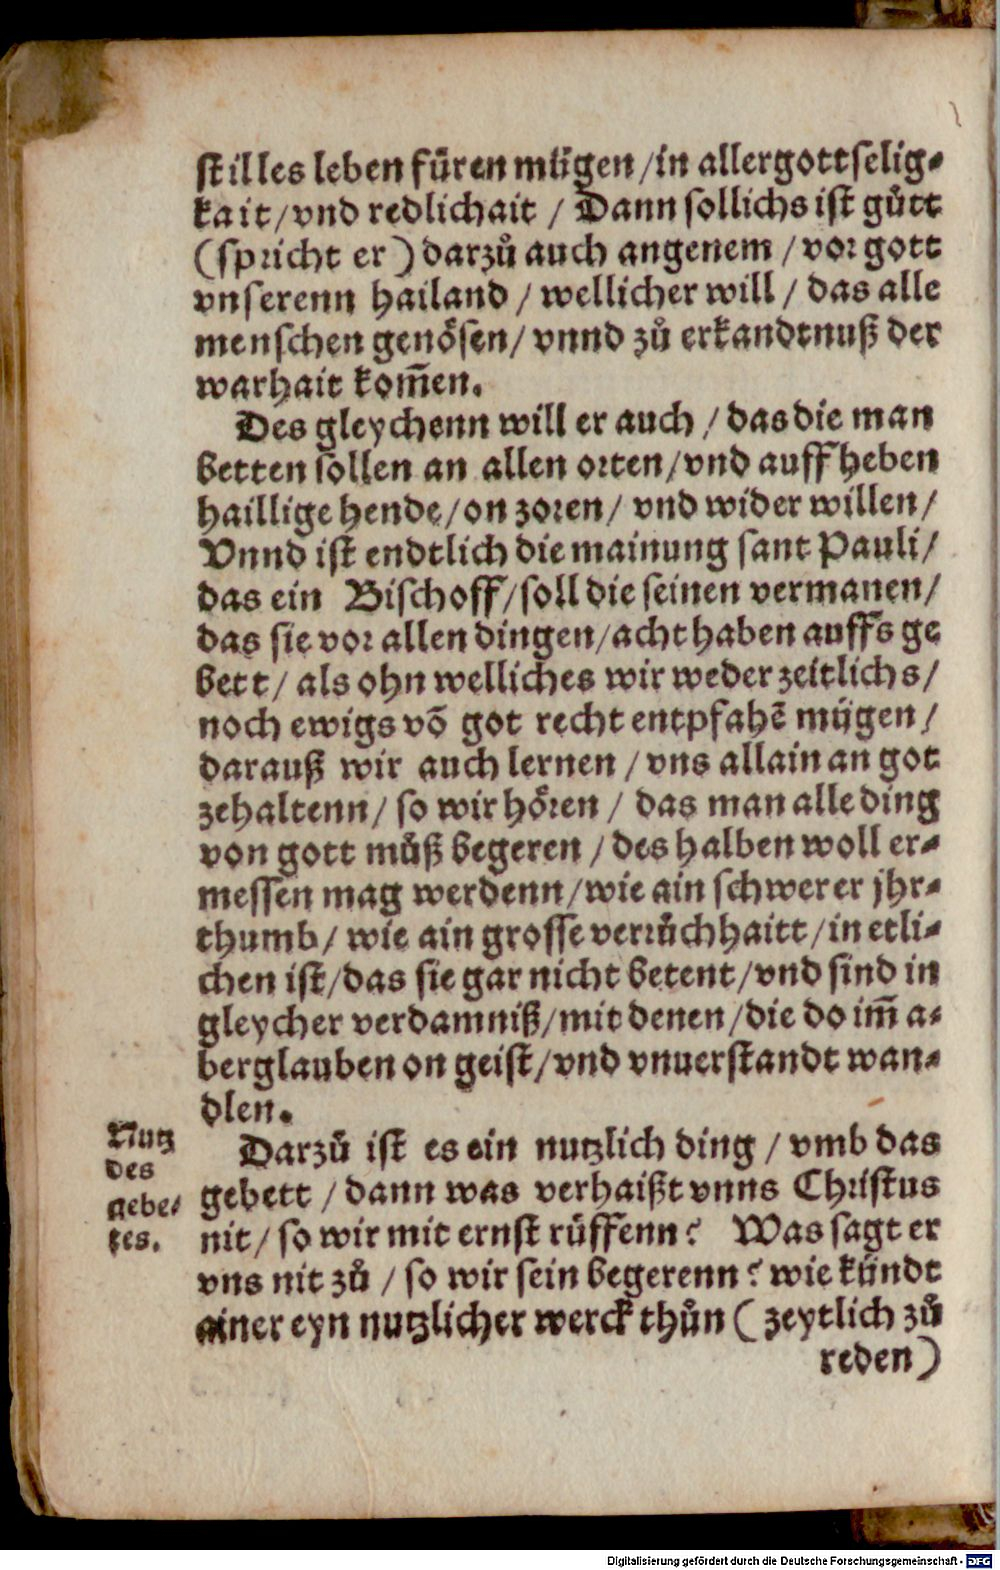 stilles leben fuͤren muͤgen /in allergottselig⸗
kait/vnd redlichait / Dann sollichs ist guͤtt
(spricht er) darzuͦ auch angenem / vor gott
vnserenn hailand / wellicher will / das alle
menschen genoͤsen/ vnnd zuͦ erkandtnuß der
warhait kom̄en.
Des gleychenn will er auch / das die man
betten sollen an allen orten/vnd auff heben
haillige hende/on zoren/ vnd wider willen/
Vnnd ist endtlich die mainung sant Pauli/
das ein Bischoff/soll die seinen vermanen/
das sie vor allen dingen/acht haben auffs ge
bett/ als ohn welliches wir weder zeitlichs/
noch ewigs võ got recht entpfahẽ muͤgen/
darauß wir auch lernen / vns allain an got
zehaltenn/ so wir hoͤren / das man alle ding
von gott muͦß begeren / des halben woll er⸗
messen mag werdenn/wie ain schwerer jhr⸗
thumb/ wie ain grosse verruͦchhaitt/in etli⸗
chen ist/das sie gar nicht betent/vnd sind in
gleycher verdamniß/mit denen/die do im̄ a⸗
berglauben on geist/vnd vnuerstandt wan⸗
dlen.
Nutz
des
gebe⸗
tes.
Darzuͦ ist es ein nutzlich ding / vmb das
gebett / dann was verhaißt vnns Christus
nit/ so wir mit ernst ruͤffenn? Was sagt er
vns nit zuͦ / so wir sein begerenn? wie kuͤndt
ainer eyn nutzlicher werck thuͦn ( zeytlich zuͦ
reden)
Digitalisierung gefördert durch die Deutsche Forschungsgemeinschaft - DFG